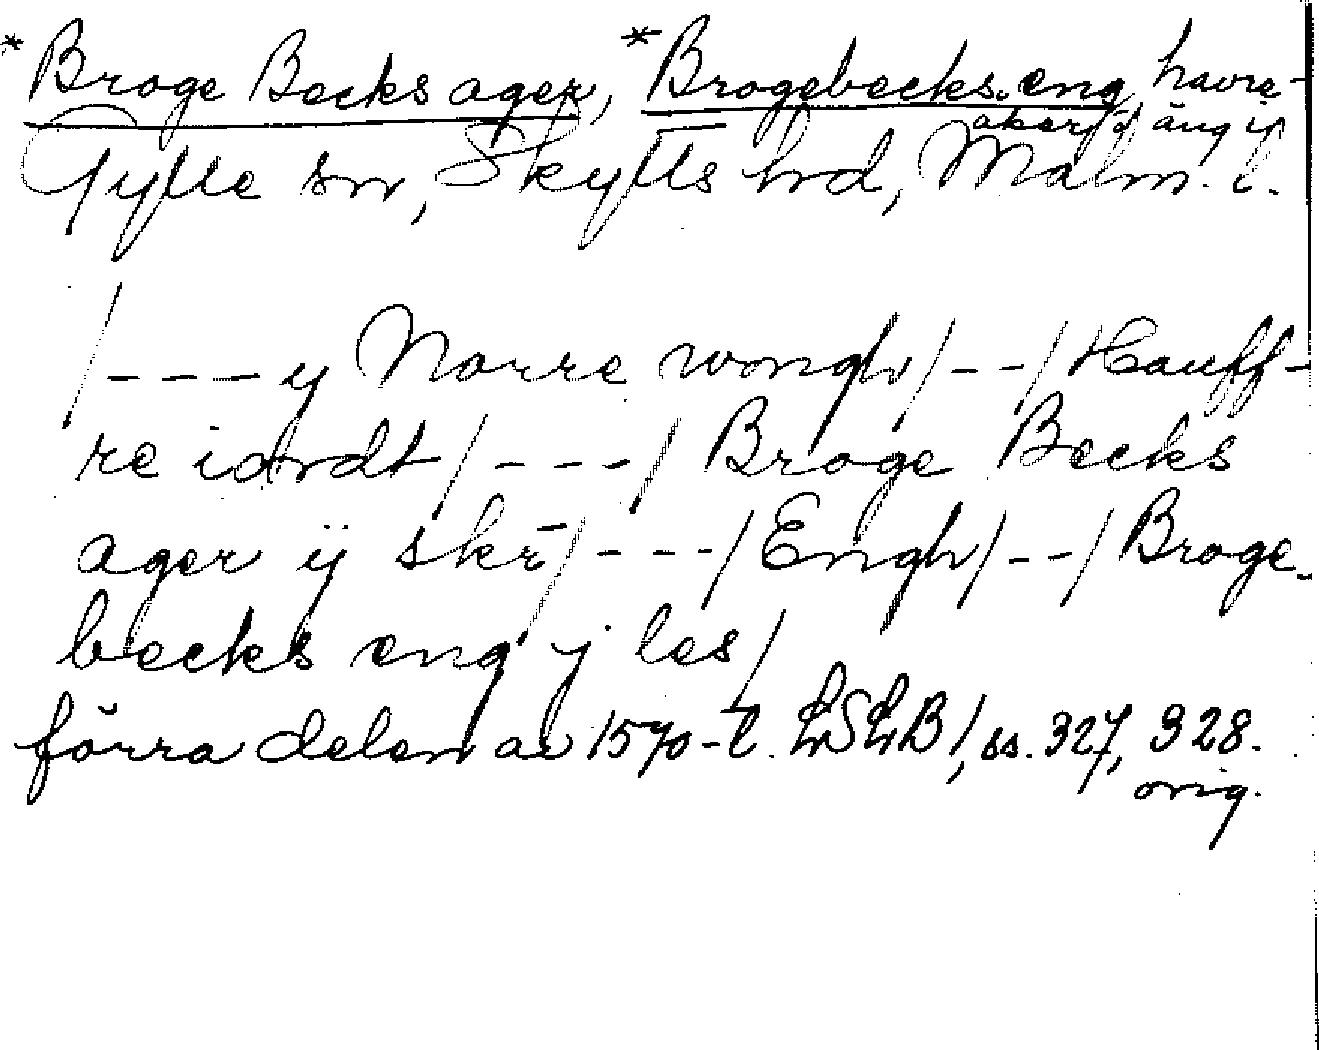 *Broge Becks ager, *Brogebecks eng, havre-
åker, äng i
Gylle sn, Skytts hd, Malm. l.
/---y Norre wongh/--/Hauff-
re iordt/---/Broge Becks
ager ÿ skr̄/---/Engh/--/Broge-
becks eng j les/
förra delen av 1570-t. LSLB, ss. 327, 328.
orig.